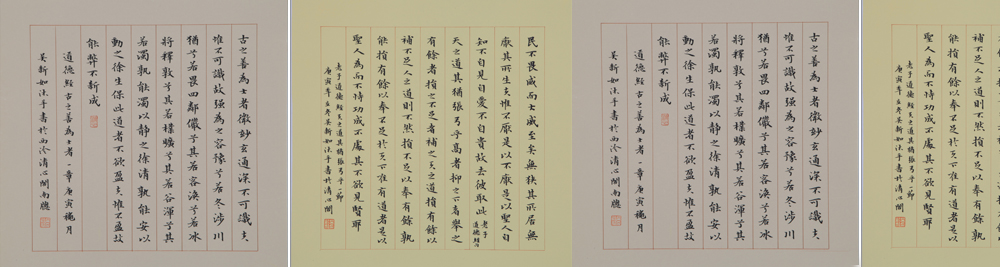 古之善為士者微妙玄通深不可識夫
惟不可識故強為之容豫兮若冬涉川
猶兮若畏四鄰儼兮其若容渙兮若冰
將釋敦兮其若樸曠兮其若谷渾兮其
若濁孰能濁以靜之徐清孰能安以
動之徐生保此道者不欲盈夫惟不盈故
能弊不新成
道德經古之善為士者一章庚寅穐月
吳新如沐手書於西泠清心閣南牕
民不畏威而大威至矣無狹其所居無
厭其所生夫惟不厭是以不厭是以聖人自
知不自見自愛不自貴故去彼取此老子道德經
天之道其猶張弓乎高者抑之下者舉之
有餘者損之不足者補之天之道損有餘以
補不足人之道則不然損不足以奉有餘孰
能損有餘以奉不足於天下惟有道者是以
聖人為而不恃功成不處其不欲見賢耶
老子道德經天之道其猶張弓乎一節
庚寅年立冬吳新如沐手書於清心閣
古之善為士者微妙玄通深不可識夫
惟不可識故強為之容豫兮若冬涉川
猶兮若畏四鄰儼兮其若容渙兮若冰
將釋敦兮其若樸曠兮其若谷渾兮其
若濁孰能濁以靜之徐清孰能安以
動之徐生保此道者不欲盈夫惟不盈故
能弊不新成
道德經古之善為士者一章庚寅穐月
吳新如沐手書於西泠清心閣南牕
能損有餘以奉不足於天下惟有道者是以
聖人為而不恃功成不處其不欲見賢耶
老子道德經天之道其猶張弓乎一節
庚寅年立冬吳新如沐手書於清心閣